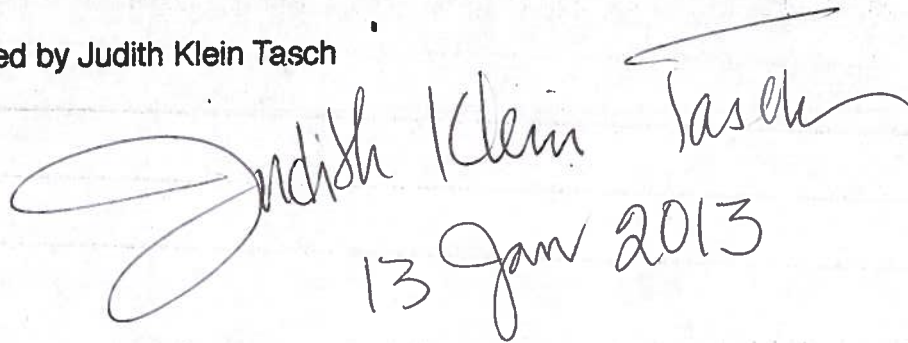 ed by Judith Klein Tasch
Judith Klein Tasch
13 Jan 2013